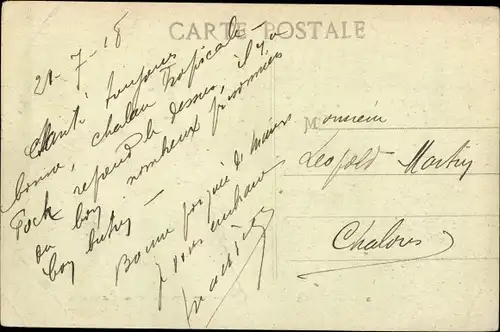 CARTE POSTALE
21-7-18
Santé toujours
bonne, chaleur tropicale -
Foch reprend le dessus, il y a
du bon, nombreux prisonniers
Bonne poignée de mains
je vous embrasse
Monsieur
Léopold Martry
Chalons